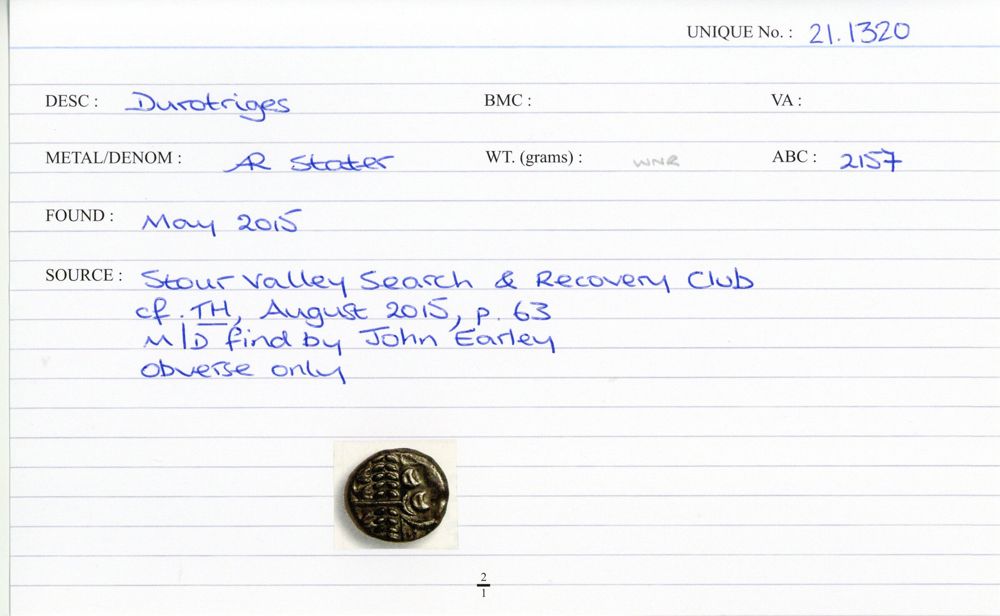 UNIQUE No. : 21.1320
DESC : Durotriges BMC : VA :
METAL/DENOM : AR Stater WT. (grams) : WNR ABC : 2157
FOUND : May 2015
SOURCE : Stour Valley Search & Recovery Club
cf. TH, August 2015, p. 63
M/D find by John Earley
obverse only
2
1